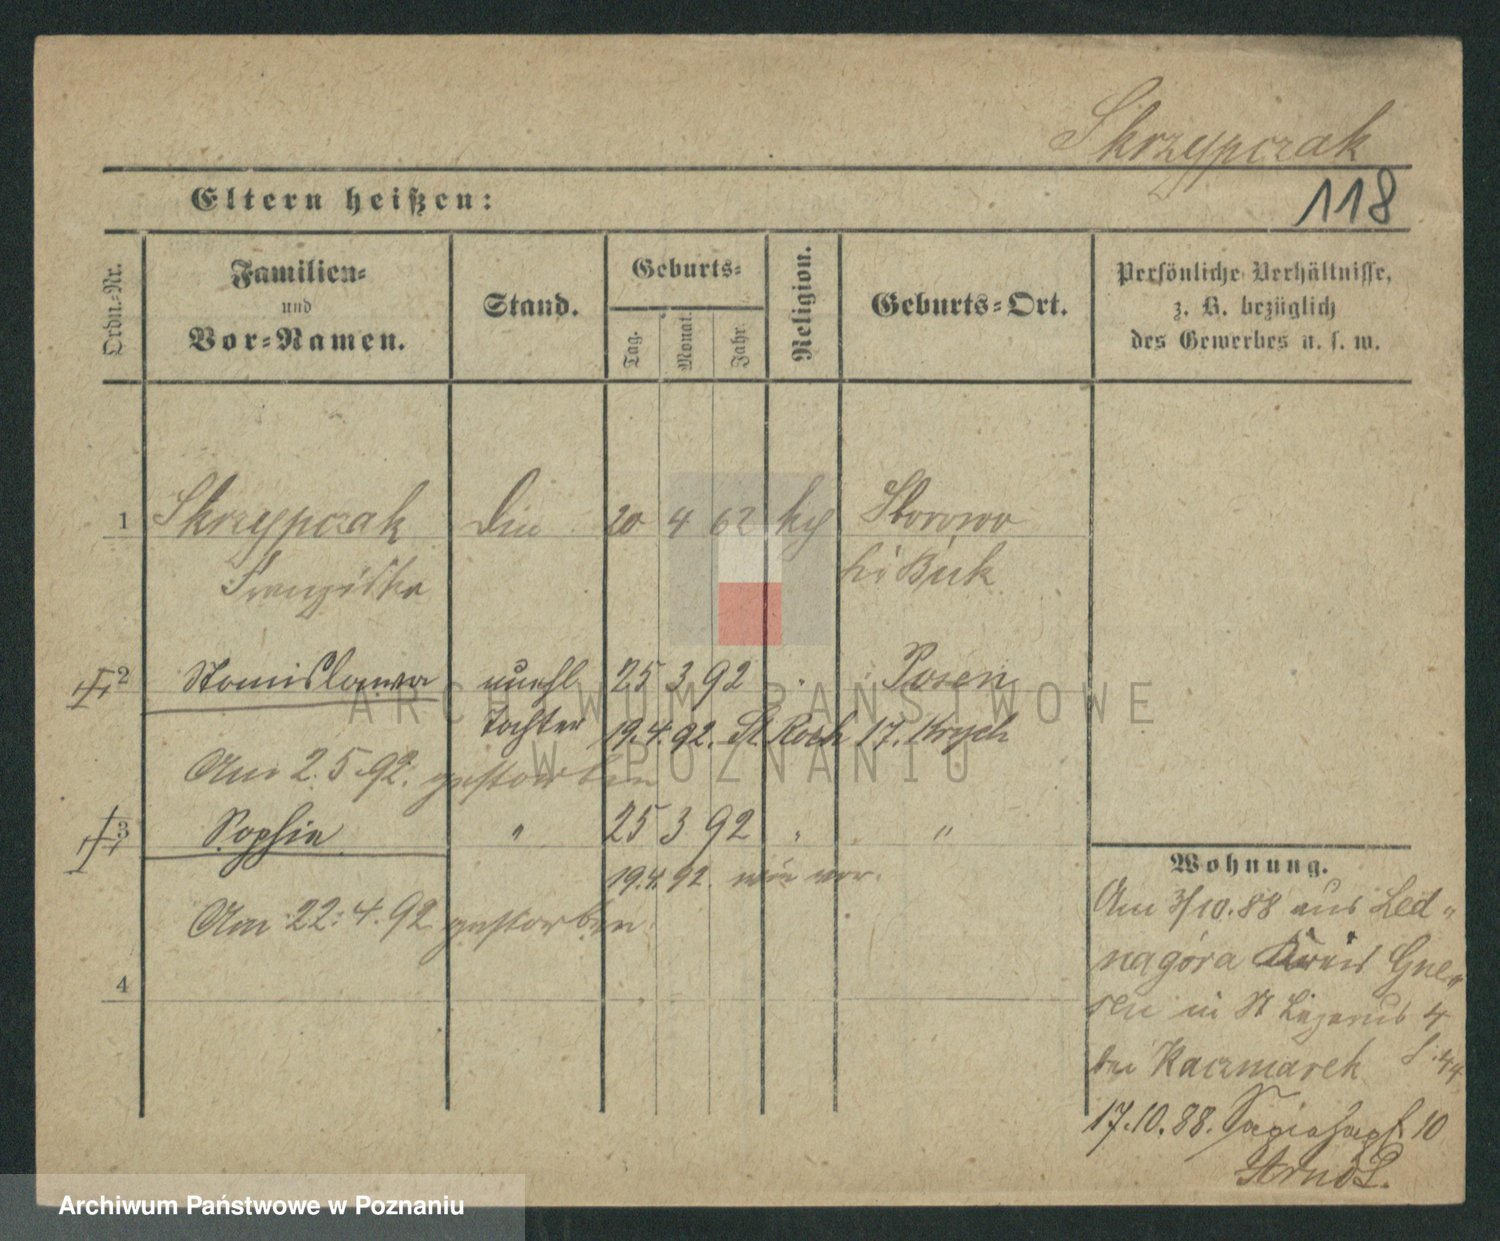 Skrzypczak
118
Eltern heißen:
Ordn.-Nr.
Familien-
und
Vor-Namen.
Stand.
Geburts-
Tag.
Monat.
Jahr.
Religion.
Geburts-Ort.
Persönliche Verhältnisse,
z. B. bezüglich
des Gewerbes u. s. w.
1 Skrzypczak 20 4 62
Franziska bei Buk
2 Stanislawa unehl 25 3 92 Posen
Tochter 19.4.92. St Roch 17. Krych
Am 2.5.92. gestorben
3 Sophie " 25 3 92 " "
19.4.92. wie vor.
Am 22.4.92 gestorben
4
Wohnung.
Am 3/10.88 aus Led-
nagóra Kreis Gne-
sen in St Lazarus 4
bei Kaczmarek
17.10.88. 10
ARCHIWUM PAŃSTWOWE
W POZNANIU
Archiwum Państwowe w Poznaniu